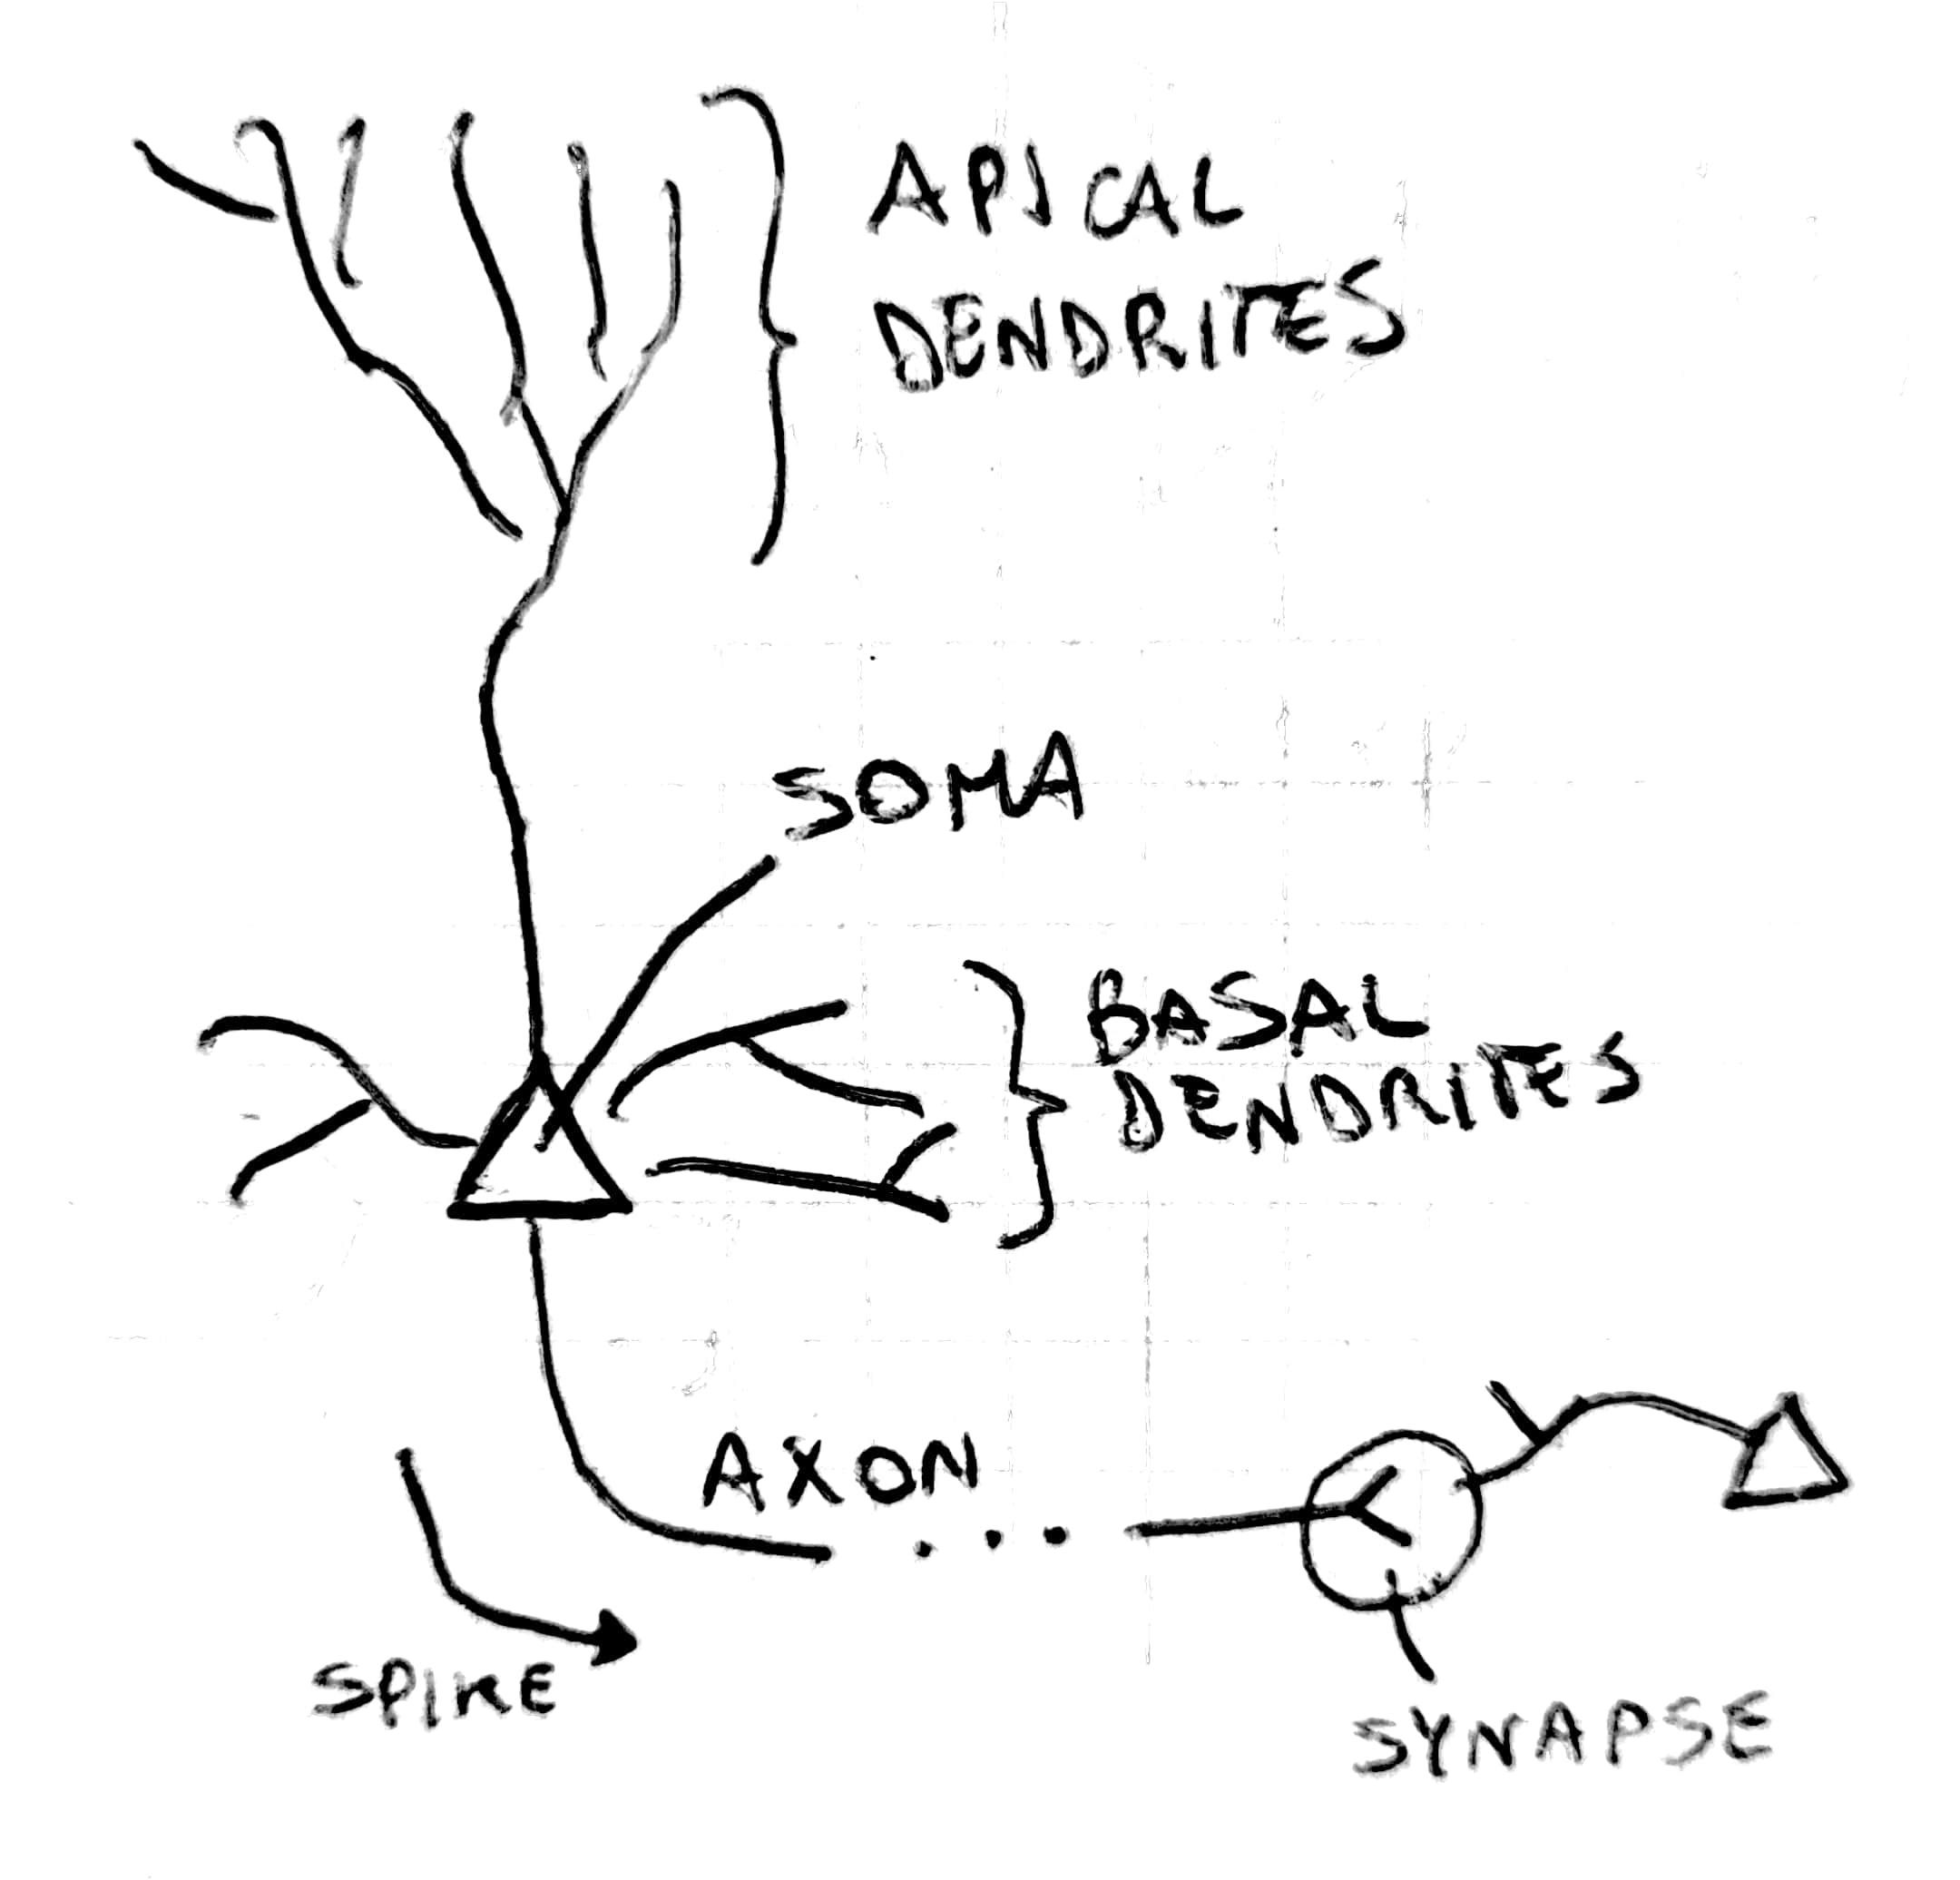 APICAL
DENDRITES
SOMA
BASAL
DENDRITES
AXON
SPIKE
SYNAPSE